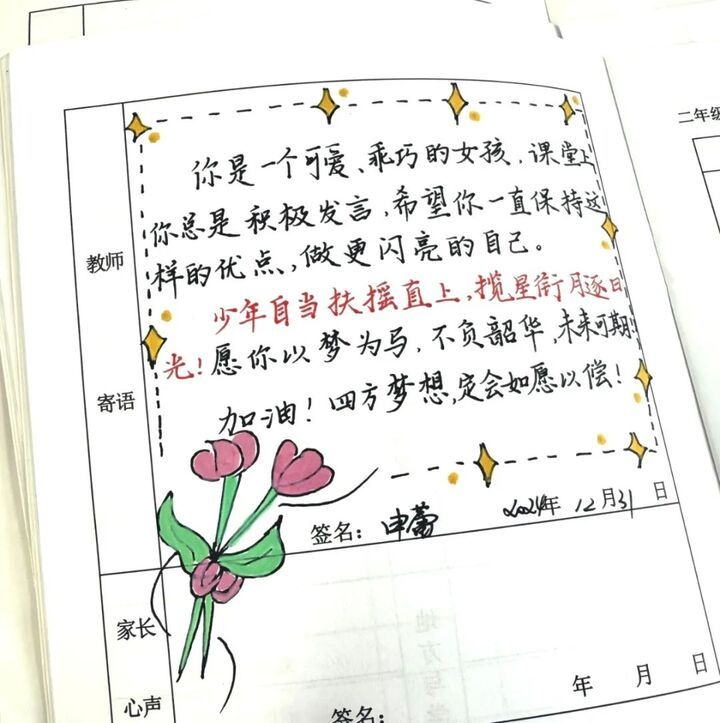 二年级
教师
寄语
你是一个可爱、乖巧的女孩，课堂上
你总是积极发言，希望你一直保持这
样的优点，做更闪亮的自己。
少年自当扶摇直上，揽星衔月逐日
光！愿你以梦为马，不负韶华，未来可期！
加油！四方梦想，定会如愿以偿！
签名：申蕾 2024年 12月31 日
家长
心声
年 月 日
签名：